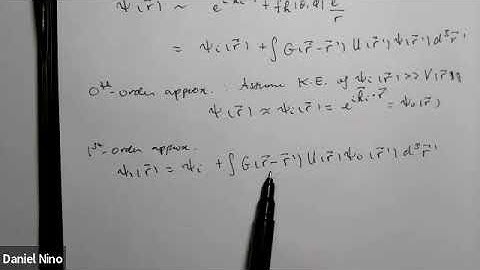 ψ(r⃗) ~ e^{ik⃗i·r⃗} + fk(θ,φ) e/r
= ψi(r⃗) + ∫G(r⃗-r⃗') U(r⃗') ψ(r⃗') d³r⃗'
0th-order approx. : Assume K.E. of ψi(r⃗) >> V(r⃗)
ψ(r⃗) ≈ ψi(r⃗) = e^{ik⃗i·r⃗} = ψ0(r⃗)
1st-order approx.
ψ1(r⃗) = ψi + ∫G(r⃗-r⃗') U(r⃗') ψ0(r⃗') d³r⃗'
Daniel Nino